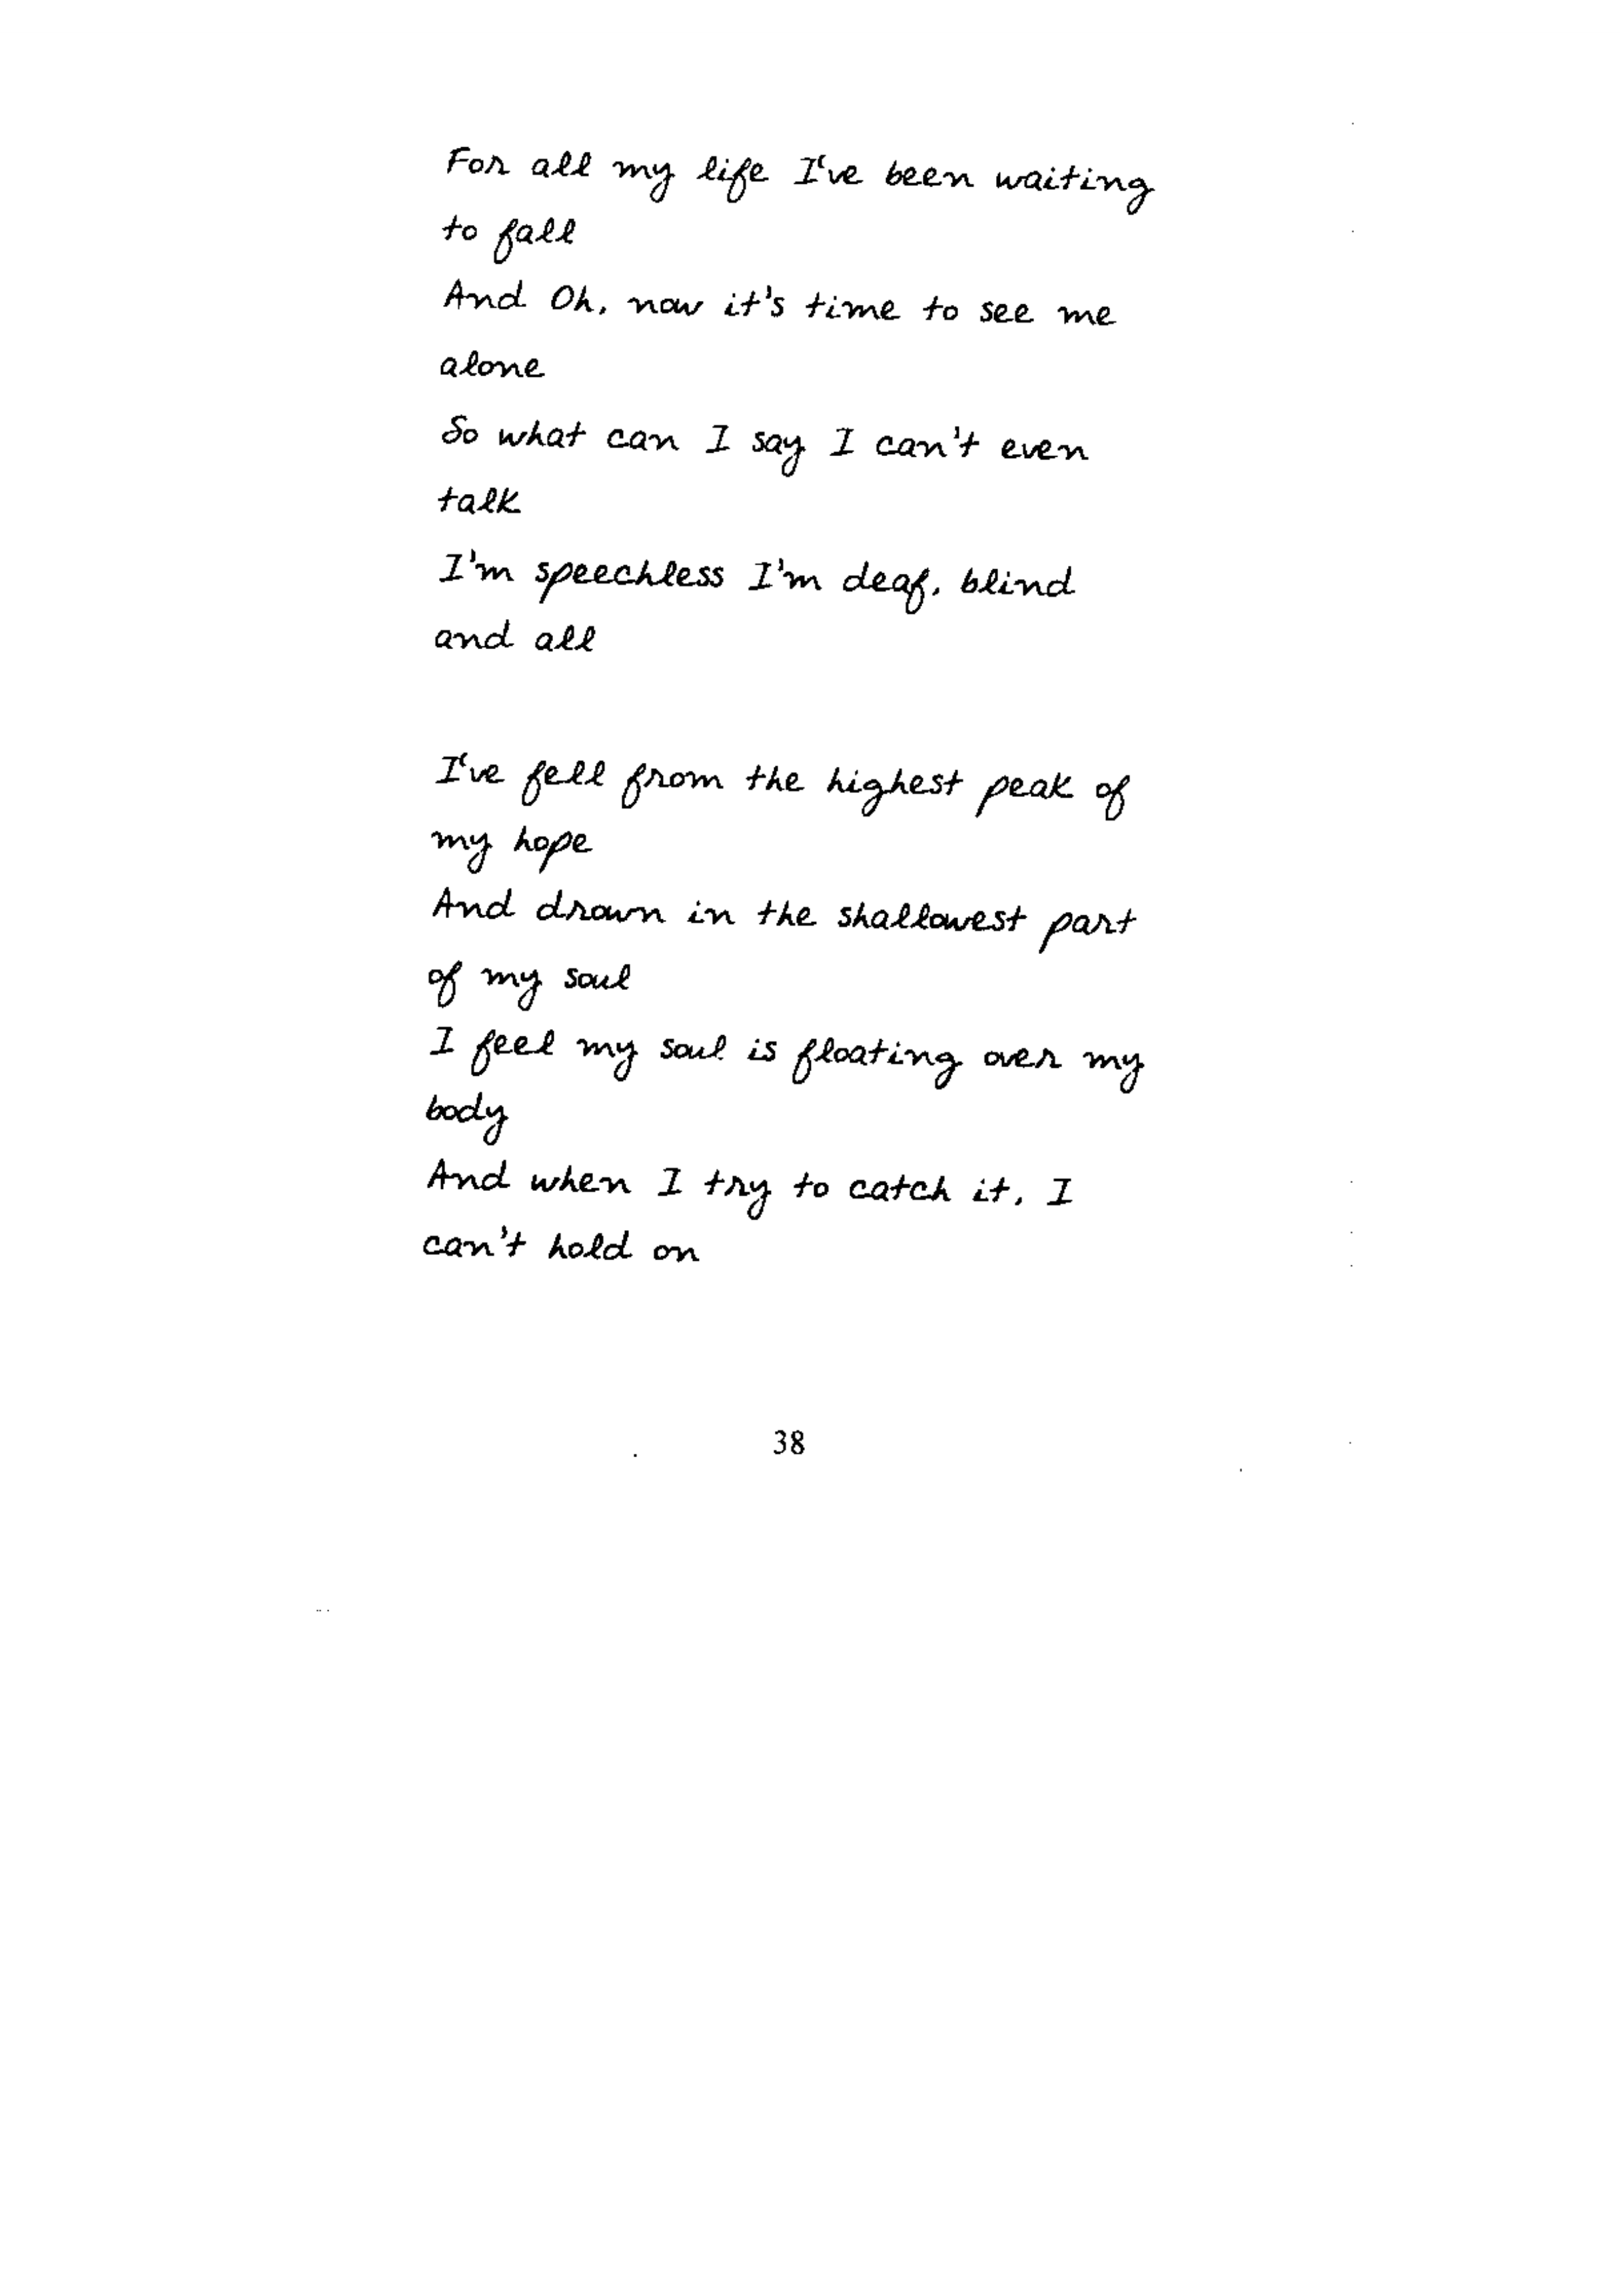 For all my life I've been waiting
to fall
And Oh, now it's time to see me
alone
So what can I say I can't even
talk
I'm speechless I'm deaf, blind
and all
I've fell from the highest peak of
my hope
And drown in the shallowest part
of my soul
I feel my soul is floating over my
body
And when I try to catch it, I
can't hold on
38